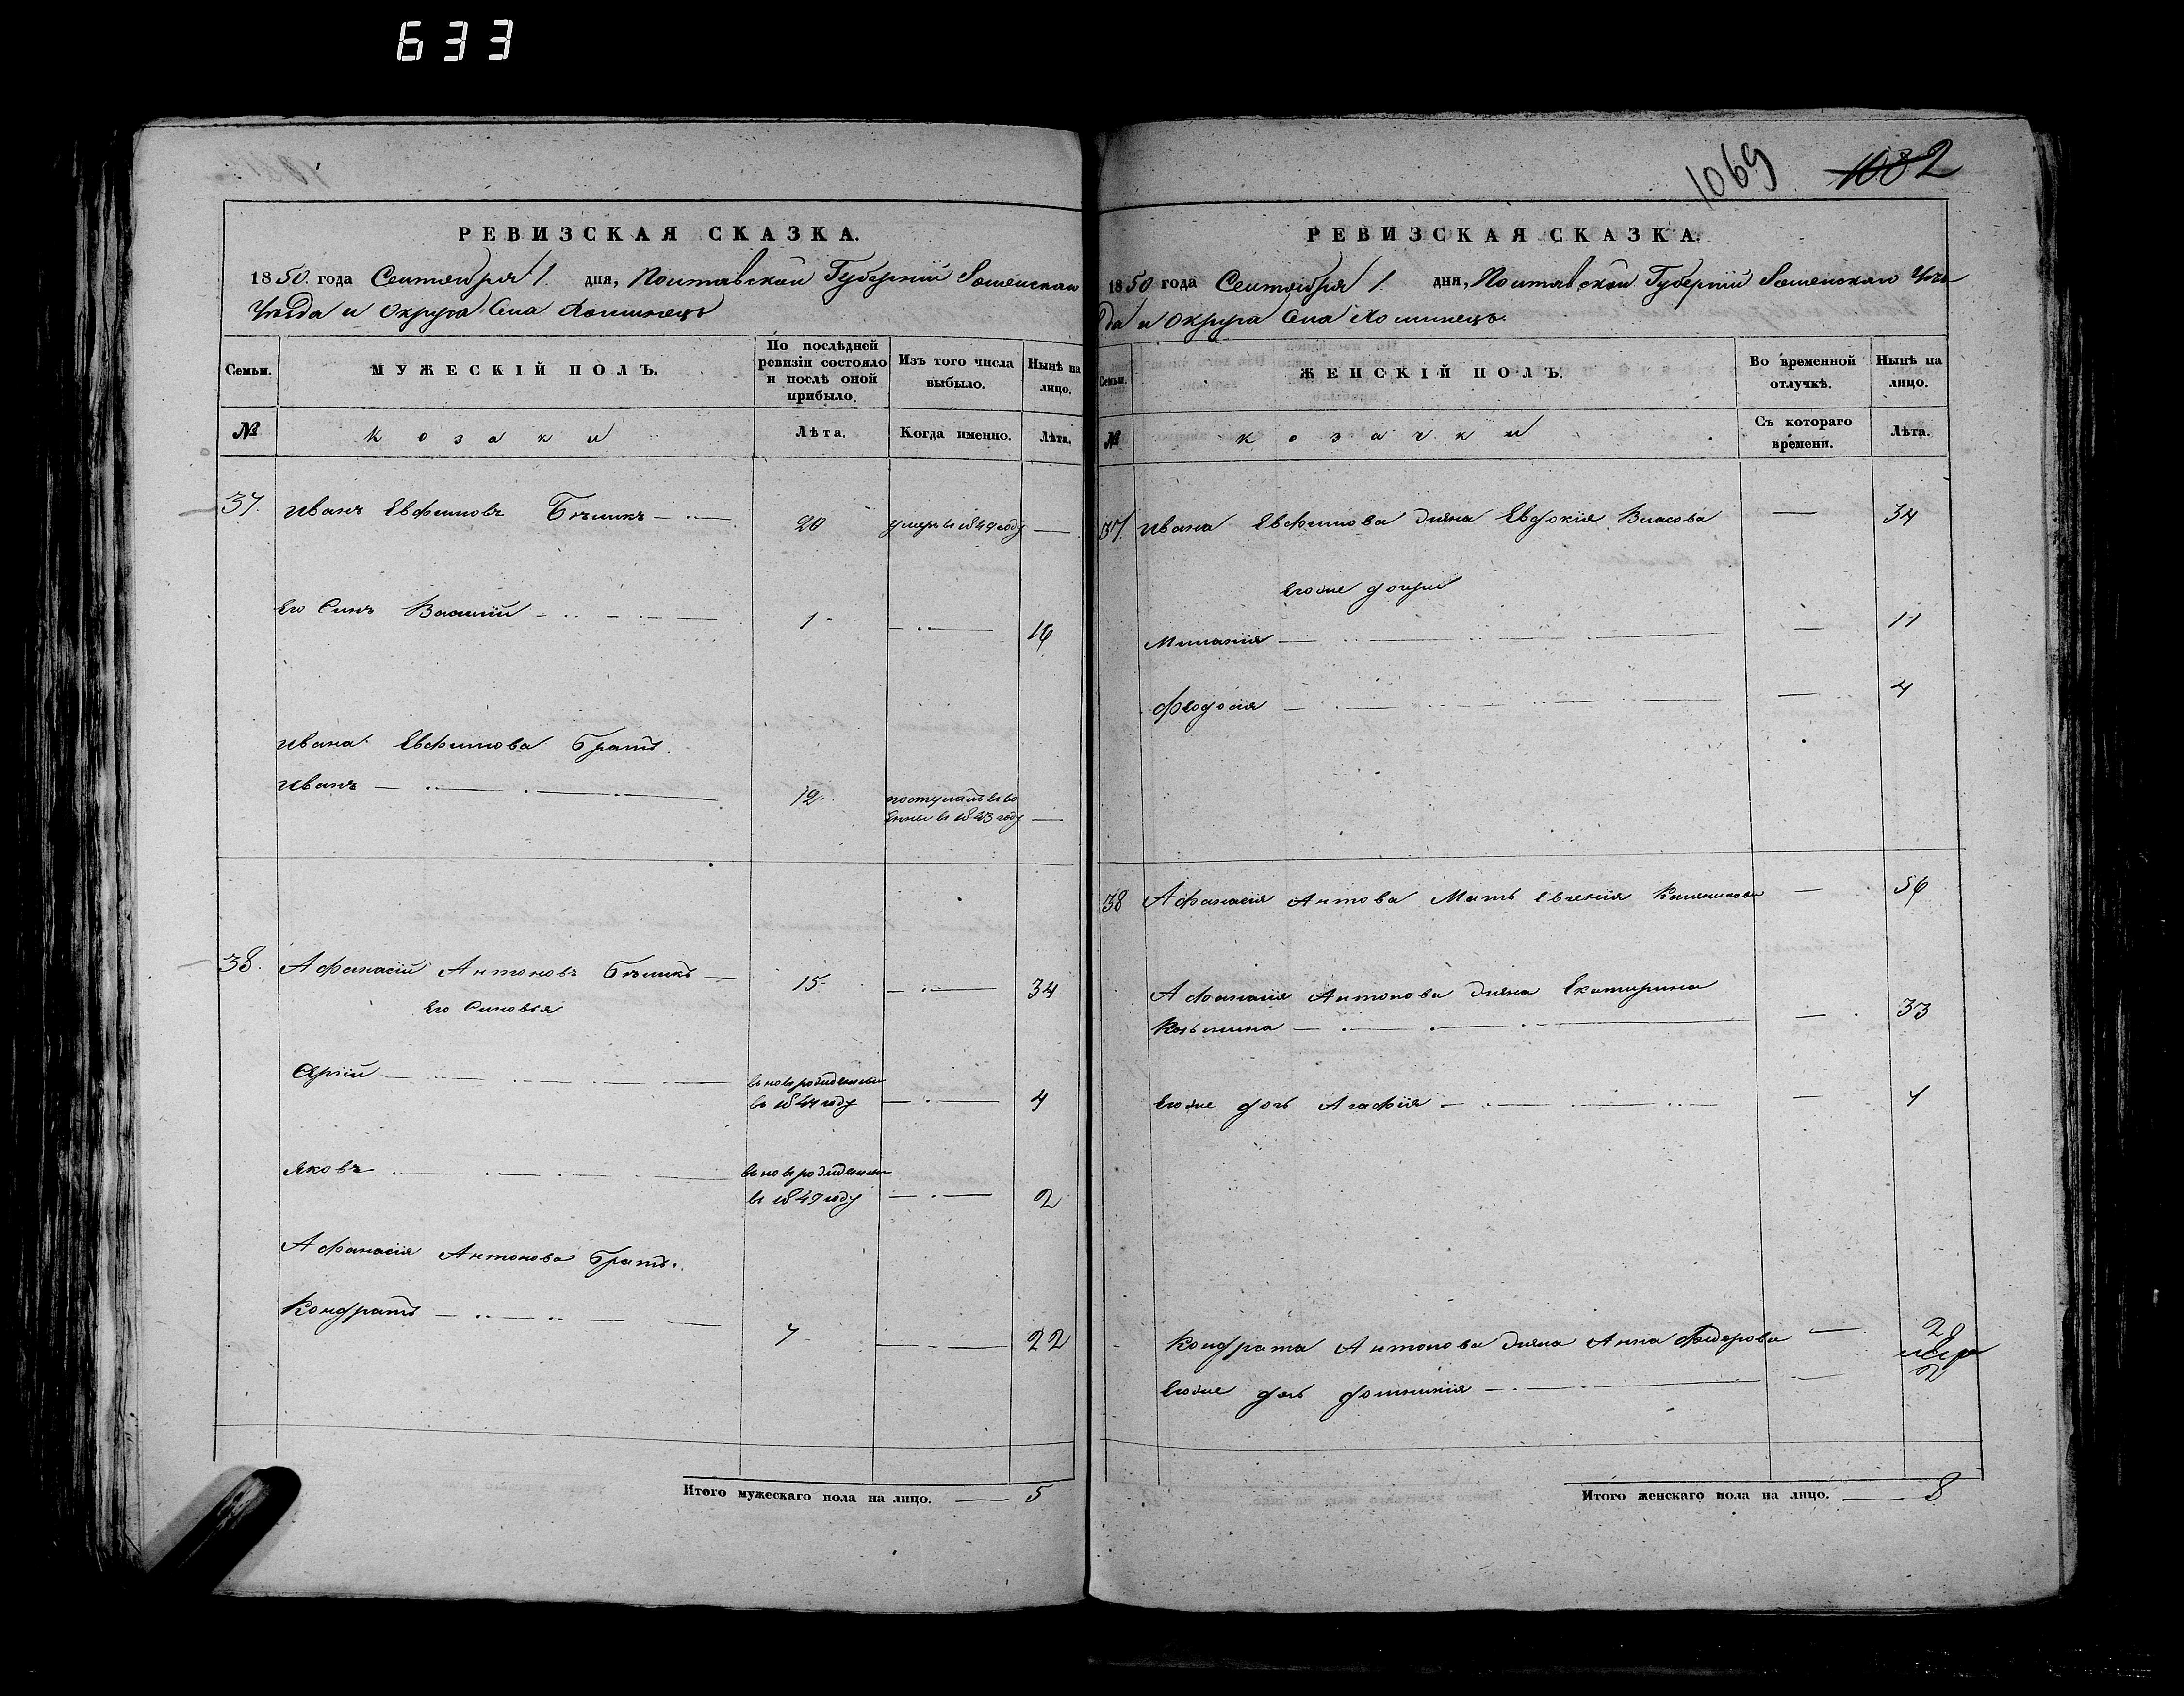 633
1069 1082
РЕВИЗСКАЯ СКАЗКА.
1850. года Сентября 1. дня, Полтавской Губернiи
уѣзда и Округа Села
Семьи.
МУЖЕСКIЙ ПОЛЪ.
По послѣдней ревизiи состояло и послѣ оной прибыло.
Изъ того числа выбыло.
Нынѣ на лицо.
№
Козаки
Лѣта.
Когда именно.
Лѣта.
37. Иванъ Евфимовъ Бѣликъ 20 умеръ въ году —
Его Синъ Василiй 1 — 16
Ивана Евфимова братъ.
Иванъ 12 поступилъ въ во
енны въ 1843 году —
38. Афанасiй Антоновъ Бѣликъ 15 — 34
Его Синовья
вновьрожденный
въ году — 4
Яковъ вновьрожденный
въ 1849 году — 2
Афанасiя Антонова братъ.
Кондратъ 7 — 22
Итого мужескаго пола на лицо. — 5
РЕВИЗСКАЯ СКАЗКА.
1850 года Сентября 1. дня, Полтавской Губернiи Уѣз
да и Округа Села
Семьи.
ЖЕНСКIЙ ПОЛЪ.
Во временной отлучкѣ.
Нынѣ на лицо.
№
Козачки
Съ котораго времени.
Лѣта.
37. Ивана Евфимова жена Евдокiя Власова — 34
Егоже дочери
Миланiя — 11
Феодосiя — 4
38 Афанасiя Антова Мать Евгенiя — 56
Афанасiя Антонова жена Екатирина
Козьмина — 33
Егоже дочь Агафiя —
Кондрата Антонова жена Анна Федорова —
Егоже дочь Домникiя — 2
Итого женскаго пола на лицо. — 8